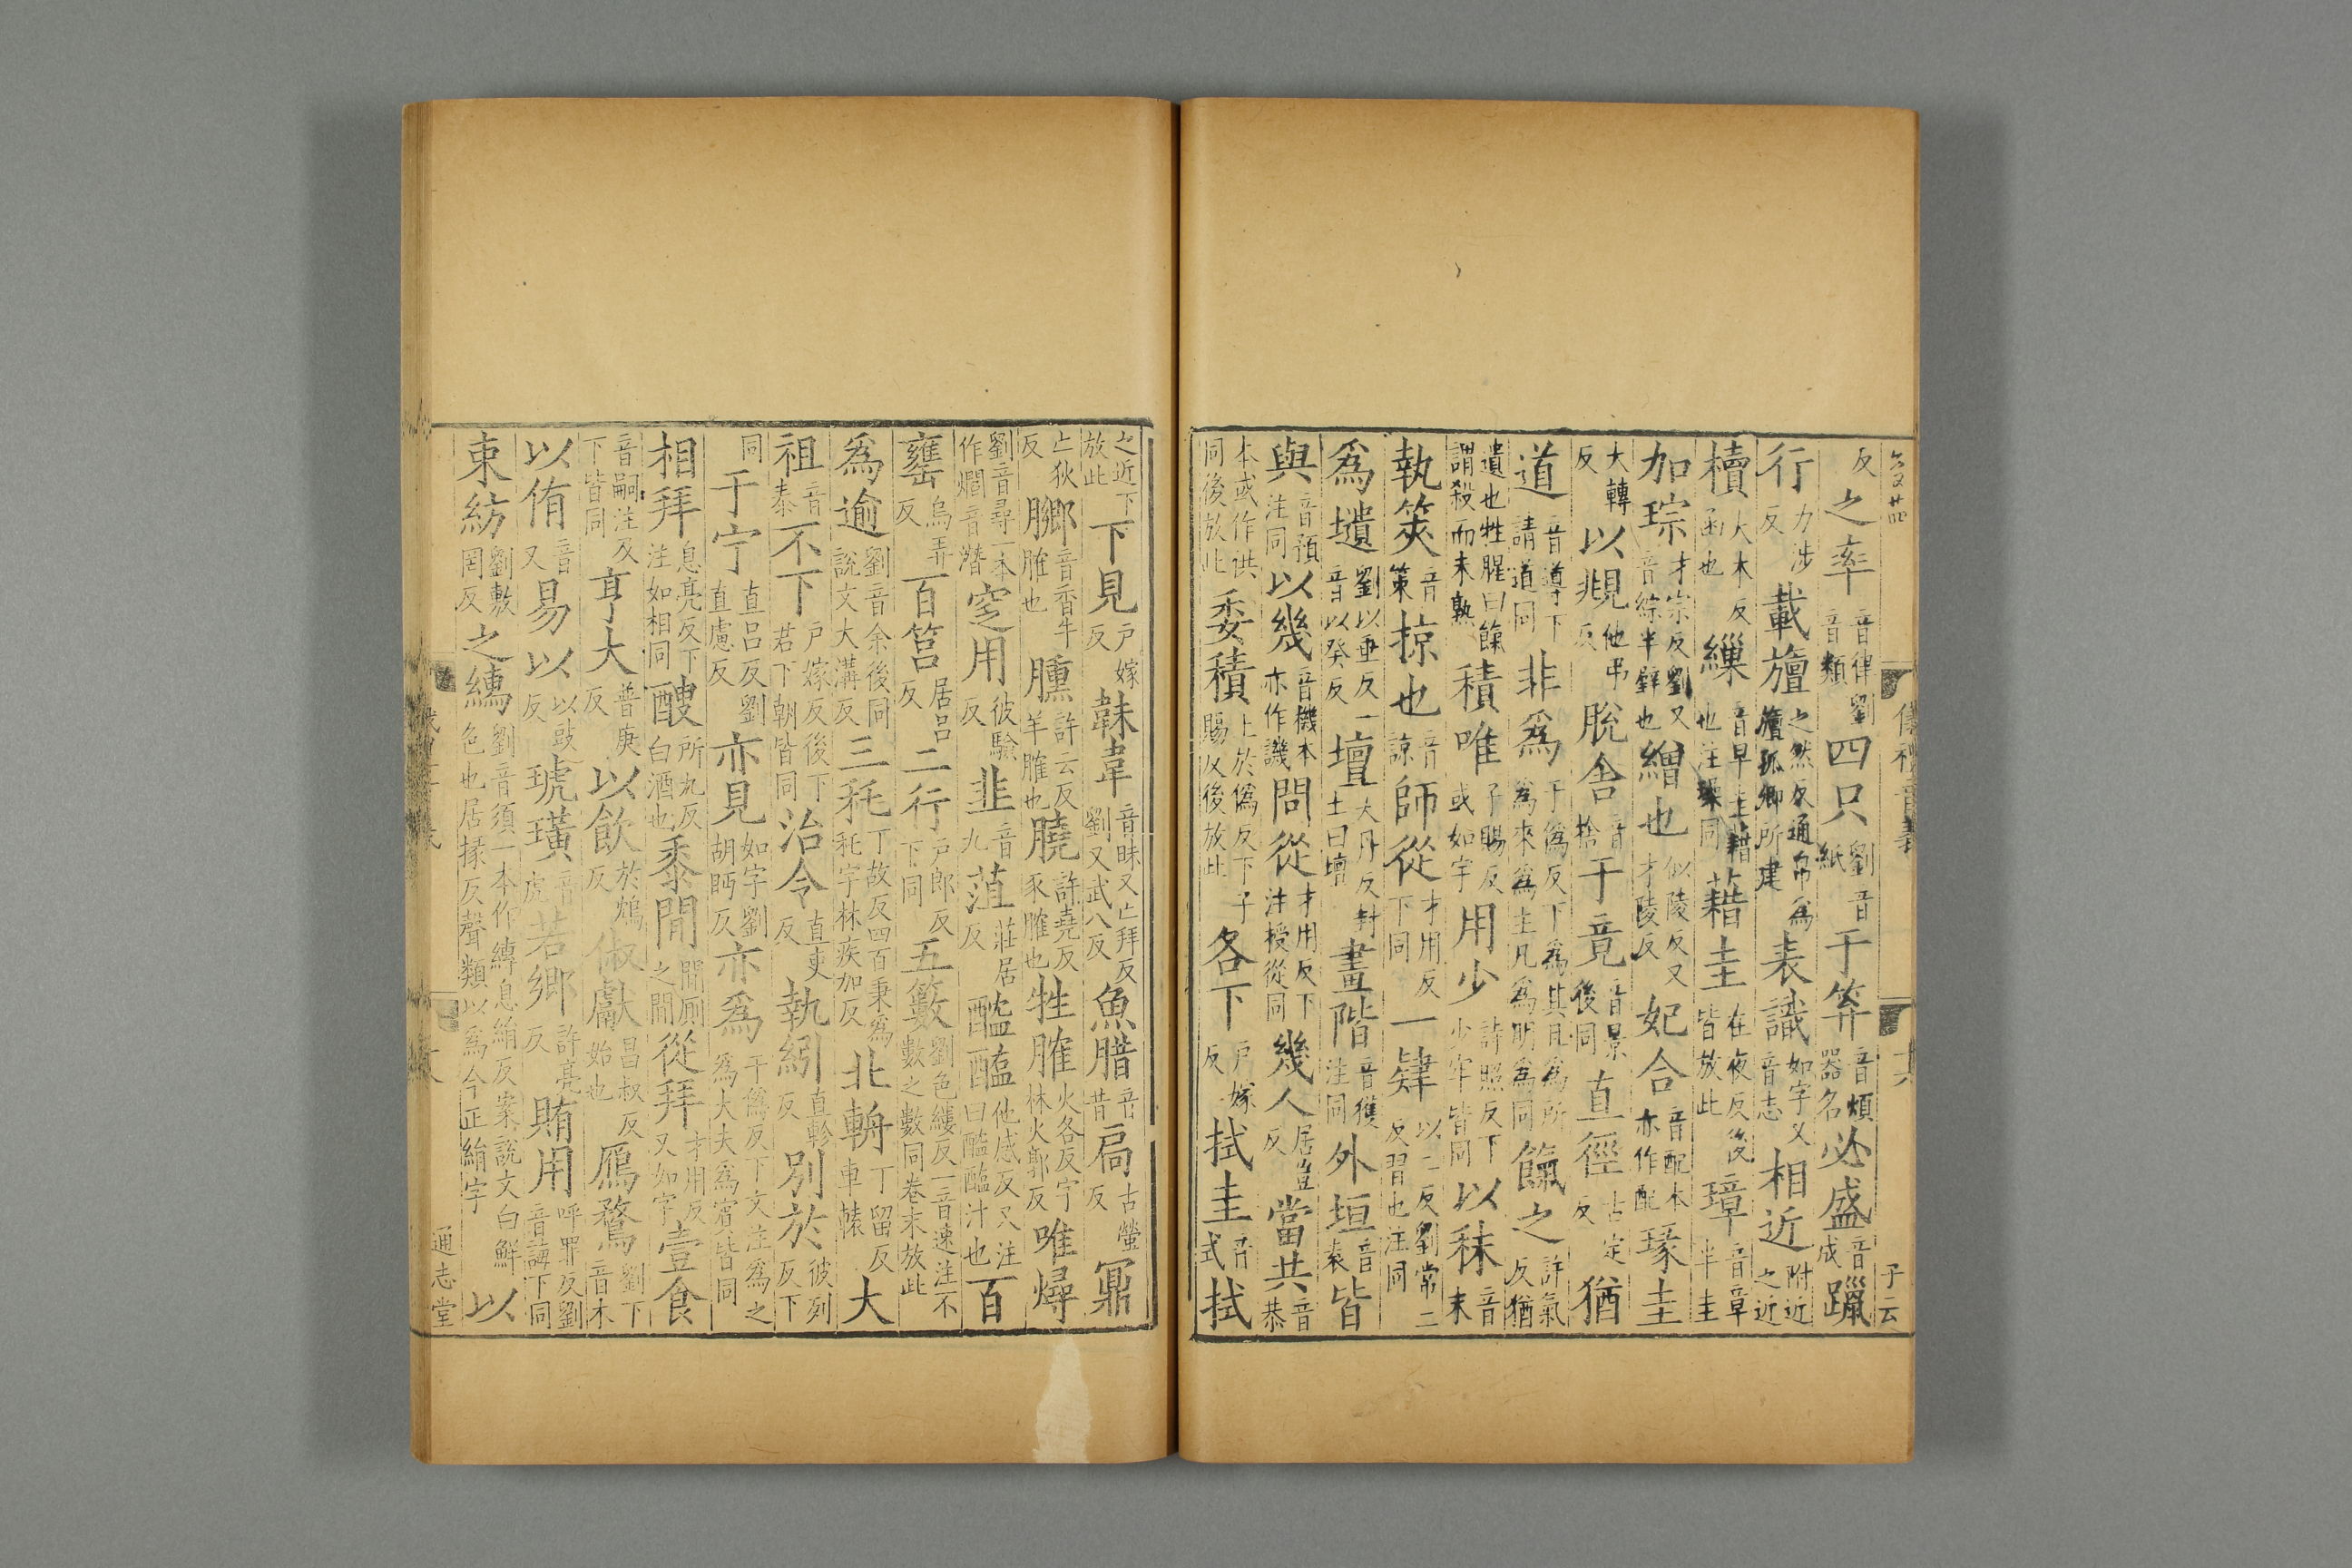 反之率音律劉音類四只劉音紙于筭音煩器名必盛音成躐
行力涉反載旜之然反通帛爲旜孤卿所建表識如字又音志相近附近之近
櫝大木反函也繅音早圭藉也注璪同藉圭在夜反後皆放此璋音章半圭
加琮才宗反劉又音綜半辟也繒也似陵反又才陵反妃合音配本亦作配瑑圭
大轉反以覜他弔反脫舍音捨于竟音景後同直徑古定反猶
道音導下請道同非爲于僞反下爲其且爲所爲來爲主凡爲明爲同餼之許氣反猶
遺也牲腥曰餼謂殺而未孰積唯子賜反或如字用少詩照反下少牢皆同以秣音末
執筴音策掠也音諒師從才用反下同一肄以二反劉常二反習也注同
爲壝劉以垂反一音以癸反壇大丹反封土曰壇畫階音獲注同外垣音袁皆
與音預注同以幾音機本亦作譏問從才用反下注授從同幾人居豈反當共音恭
本或作供同後放此委積上於僞反下子賜反後放此各下戶嫁反拭圭音式拭
之近下放此下見戶嫁反韎韋音昧又亡拜反劉又武八反魚腊音昔扃古螢反鼏
亡狄反膷音香牛臛也臐許云反羊臛也膮許堯反豕臛也牲臛火各反字林火郭反唯燖
劉音尋一本作爓音潛窆用彼驗反韭音九菹莊居反醓醢他感反又注曰醓醢汁也百
罋烏弄反百筥居呂反二行戶郎反下同五籔劉色縷反一音速注不數之數同卷末放此
爲逾劉音余後同說文大溝反三秅丁故反四百秉爲秅字林疾加反北輈丁留反車轅大
祖音泰不下戶嫁反後下君下朝皆同治令直吏反執紖直軫反別於彼列反下
同于宁直呂反劉直慮反亦見如字劉胡眄反亦爲于僞反下文注爲之爲大夫爲賓皆同
相拜息亮反下注如相同醙所九反白酒也黍閒閒厠之閒從拜才用反又如字壹食
音嗣注及下皆同亨大普庚反以飲於鴆反俶獻昌叔反始也鴈鶩劉下音木
以侑音又易以以豉反琥璜音虎若鄉許亮反賄用呼罪反劉音誨下同
束紡劉敷罔反之縳劉音須一本作縳息絹反案說文白鮮色也居掾反聲類以爲今正絹字以
通志堂